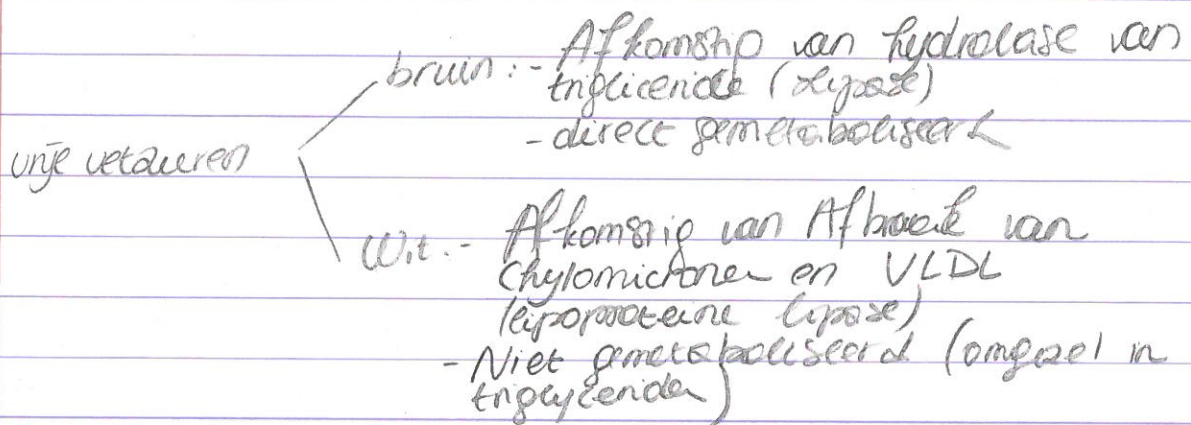 bruin: - Afkomstig van hydrolase van
trigliceride (lipase)
- direct gemetaboliseerd
vrije vetzuren
Wit: - Afkomstig van Afbraak van
Chylomicronen en VLDL
(lipoproteïne lipase)
- Niet gemetaboliseerd (omgezet in
triglyceriden)